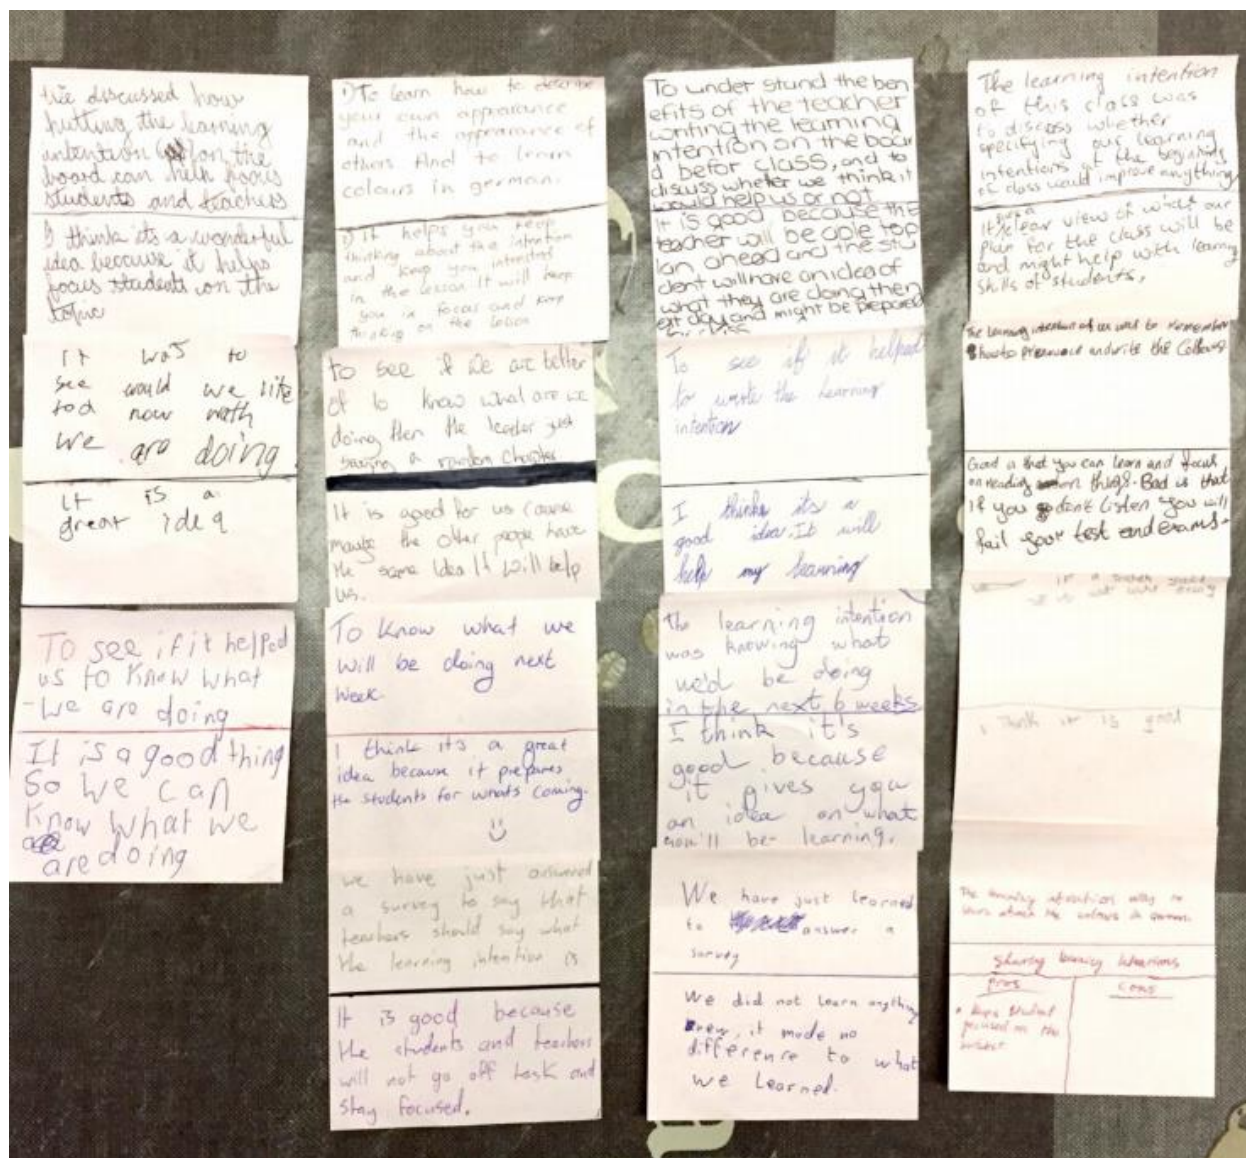 We discussed how
putting the learning
intention on the
board can help focus
students and teachers
I think its a wonderful
idea because it helps
focus students on the
topic
it was to
see would we like
to now
we are doing
it is a
great idea
To see if it helped
us to know what
-we are doing
It is a good thing
So we can
know what we
are doing
1) To learn how to describe
your own appearance
and the appearance of
others And to learn
colours in german.
1) It helps you keep
thinking about the intention
and keep you intrested
in the lesson It will keep
you in focus and keep
thinking on the
to see if we are better
of to know what are we
doing then the teacher just
saying a random chapter
It is good for us cause
maybe the other people have
the same idea It will help
us.
To know what we
will be doing next
week.
I think it's a great
idea because it prepares
the students for whats coming.
we have just answered
a survey to say that
teachers should say what
the learning intention is
It is good because
the students and teachers
will not go off task and
stay focused.
To under stand the ben
efits of the teacher
writing the learning
intention on the boar
d befor class, and to
discuss wheter we think it
would help us or not
It is good because the
teacher will be able to p
lan ahead and the stu
dent will have an idea of
what they are doing the n
ext day and might be prepared
To see if it helped
to wrote the learning
intention
I thinks its a
good idea. It will
help my learning
The learning intention
was knowing what
we'd be doing
in the next 6 weeks
I think it's
good because
it gives you
an idea on what
you'll be learning.
We have just learned
to answer a
survey
We did not learn anything
new, it made no
difference to what
we learned.
The learning intention
of this class was
to discuss whether
specifying our learning
intentions at the beginning
of class would improve anything
It clear view of what our
plan for the class will be
and might help with learning
skills of students.
The learning intention of was to remember
how to pronounce and write the
Good is that you can learn and focus
on reading things. Bad is that
if you don't listen you will
fail your test and exams.
I Think it is good
The learning intention was to
learn about the colours in german.
Sharing learning intentions
Pros
Cons
• Keeps student
focused on the